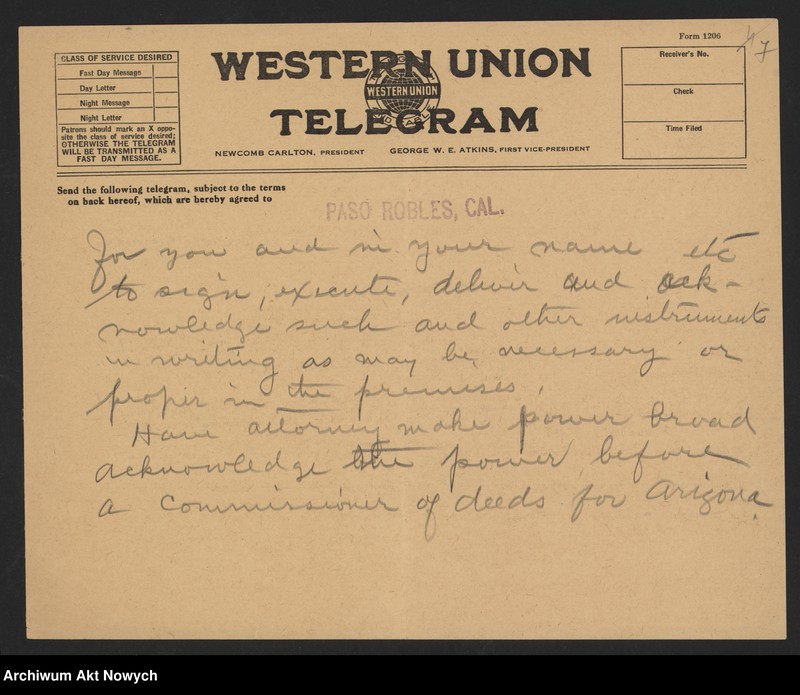 Form 1206
47
CLASS OF SERVICE DESIRED
Fast Day Message
Day Letter
Night Message
Night Letter
Patrons should mark an X oppo-
site the class of service desired;
OTHERWISE THE TELEGRAM
WILL BE TRANSMITTED AS A
FAST DAY MESSAGE.
WESTERN UNION
WESTERN UNION
TELEGRAM
NEWCOMB CARLTON, PRESIDENT GEORGE W. E. ATKINS, FIRST VICE-PRESIDENT
Receiver's No.
Check
Time Filed
Send the following telegram, subject to the terms
on back hereof, which are hereby agreed to
PASO ROBLES, CAL.
For you and in your name etc
to sign, execute, deliver and ack-
nowledge such and other instruments
in writing as may be necessary or
proper in the premises.
Have attorney make power broad
acknowledge the power before
a commissioner of deeds for Arizona.
Archiwum Akt Nowych